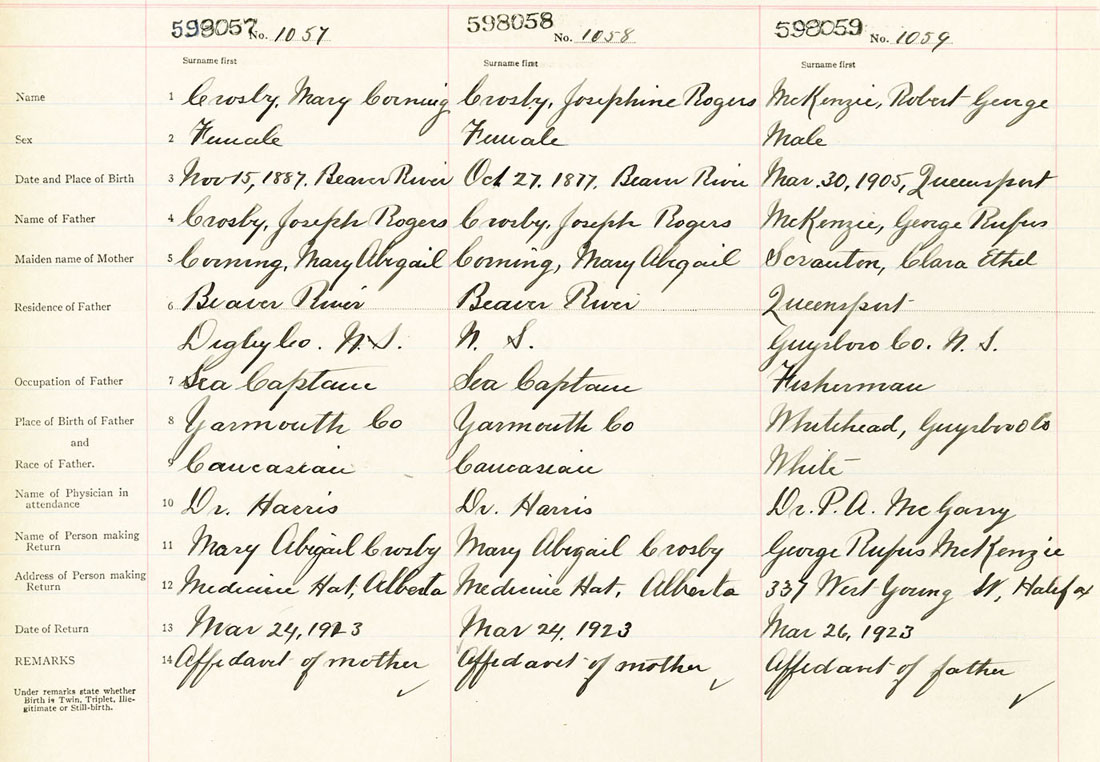 598057 No. 1057 598058 No. 1058 598059 No. 1059
Surname first Surname first Surname first
Name 1 Crosby, Mary Corning Crosby, Josephine Rogers McKenzie, Robert George
Sex 2 Female Female Male
Date and Place of Birth 3 Nov 15, 1887. Beaver River Oct 27. 1877, Beaver River Mar. 30, 1905, Queensport
Name of Father 4 Crosby, Joseph Rogers Crosby, Joseph Rogers McKenzie, George Rufus
Maiden name of Mother 5 Corning, Mary Abigail Corning, Mary Abigail Scranton, Clara Ethel
Residence of Father 6 Beaver River Beaver River Queensport
Digby Co. N.S. N. S. Guysboro Co. N. S.
Occupation of Father 7 Sea Captain Sea Captain Fisherman
Place of Birth of Father 8 Yarmouth Co Yarmouth Co Whitehead, Guysboro Co
and
Race of Father. 9 Caucasian Caucasian White
Name of Physician in
attendance 10 Dr. Harris Dr. Harris Dr. P. A. McGarry
Name of Person making
Return 11 Mary Abigail Crosby Mary Abigail Crosby George Rufus McKenzie
Address of Person making
Return 12 Medicine Hat, Alberta Medicine Hat, Alberta 337 West Young St, Halifax
Date of Return 13 Mar 24, 1923 Mar 24, 1923 Mar 26, 1923
REMARKS 14 Affidavit of mother Affidavit of mother Affidavit of father
Under remarks state whether
Birth is Twin, Triplet, Ille-
gitimate or Still-birth.